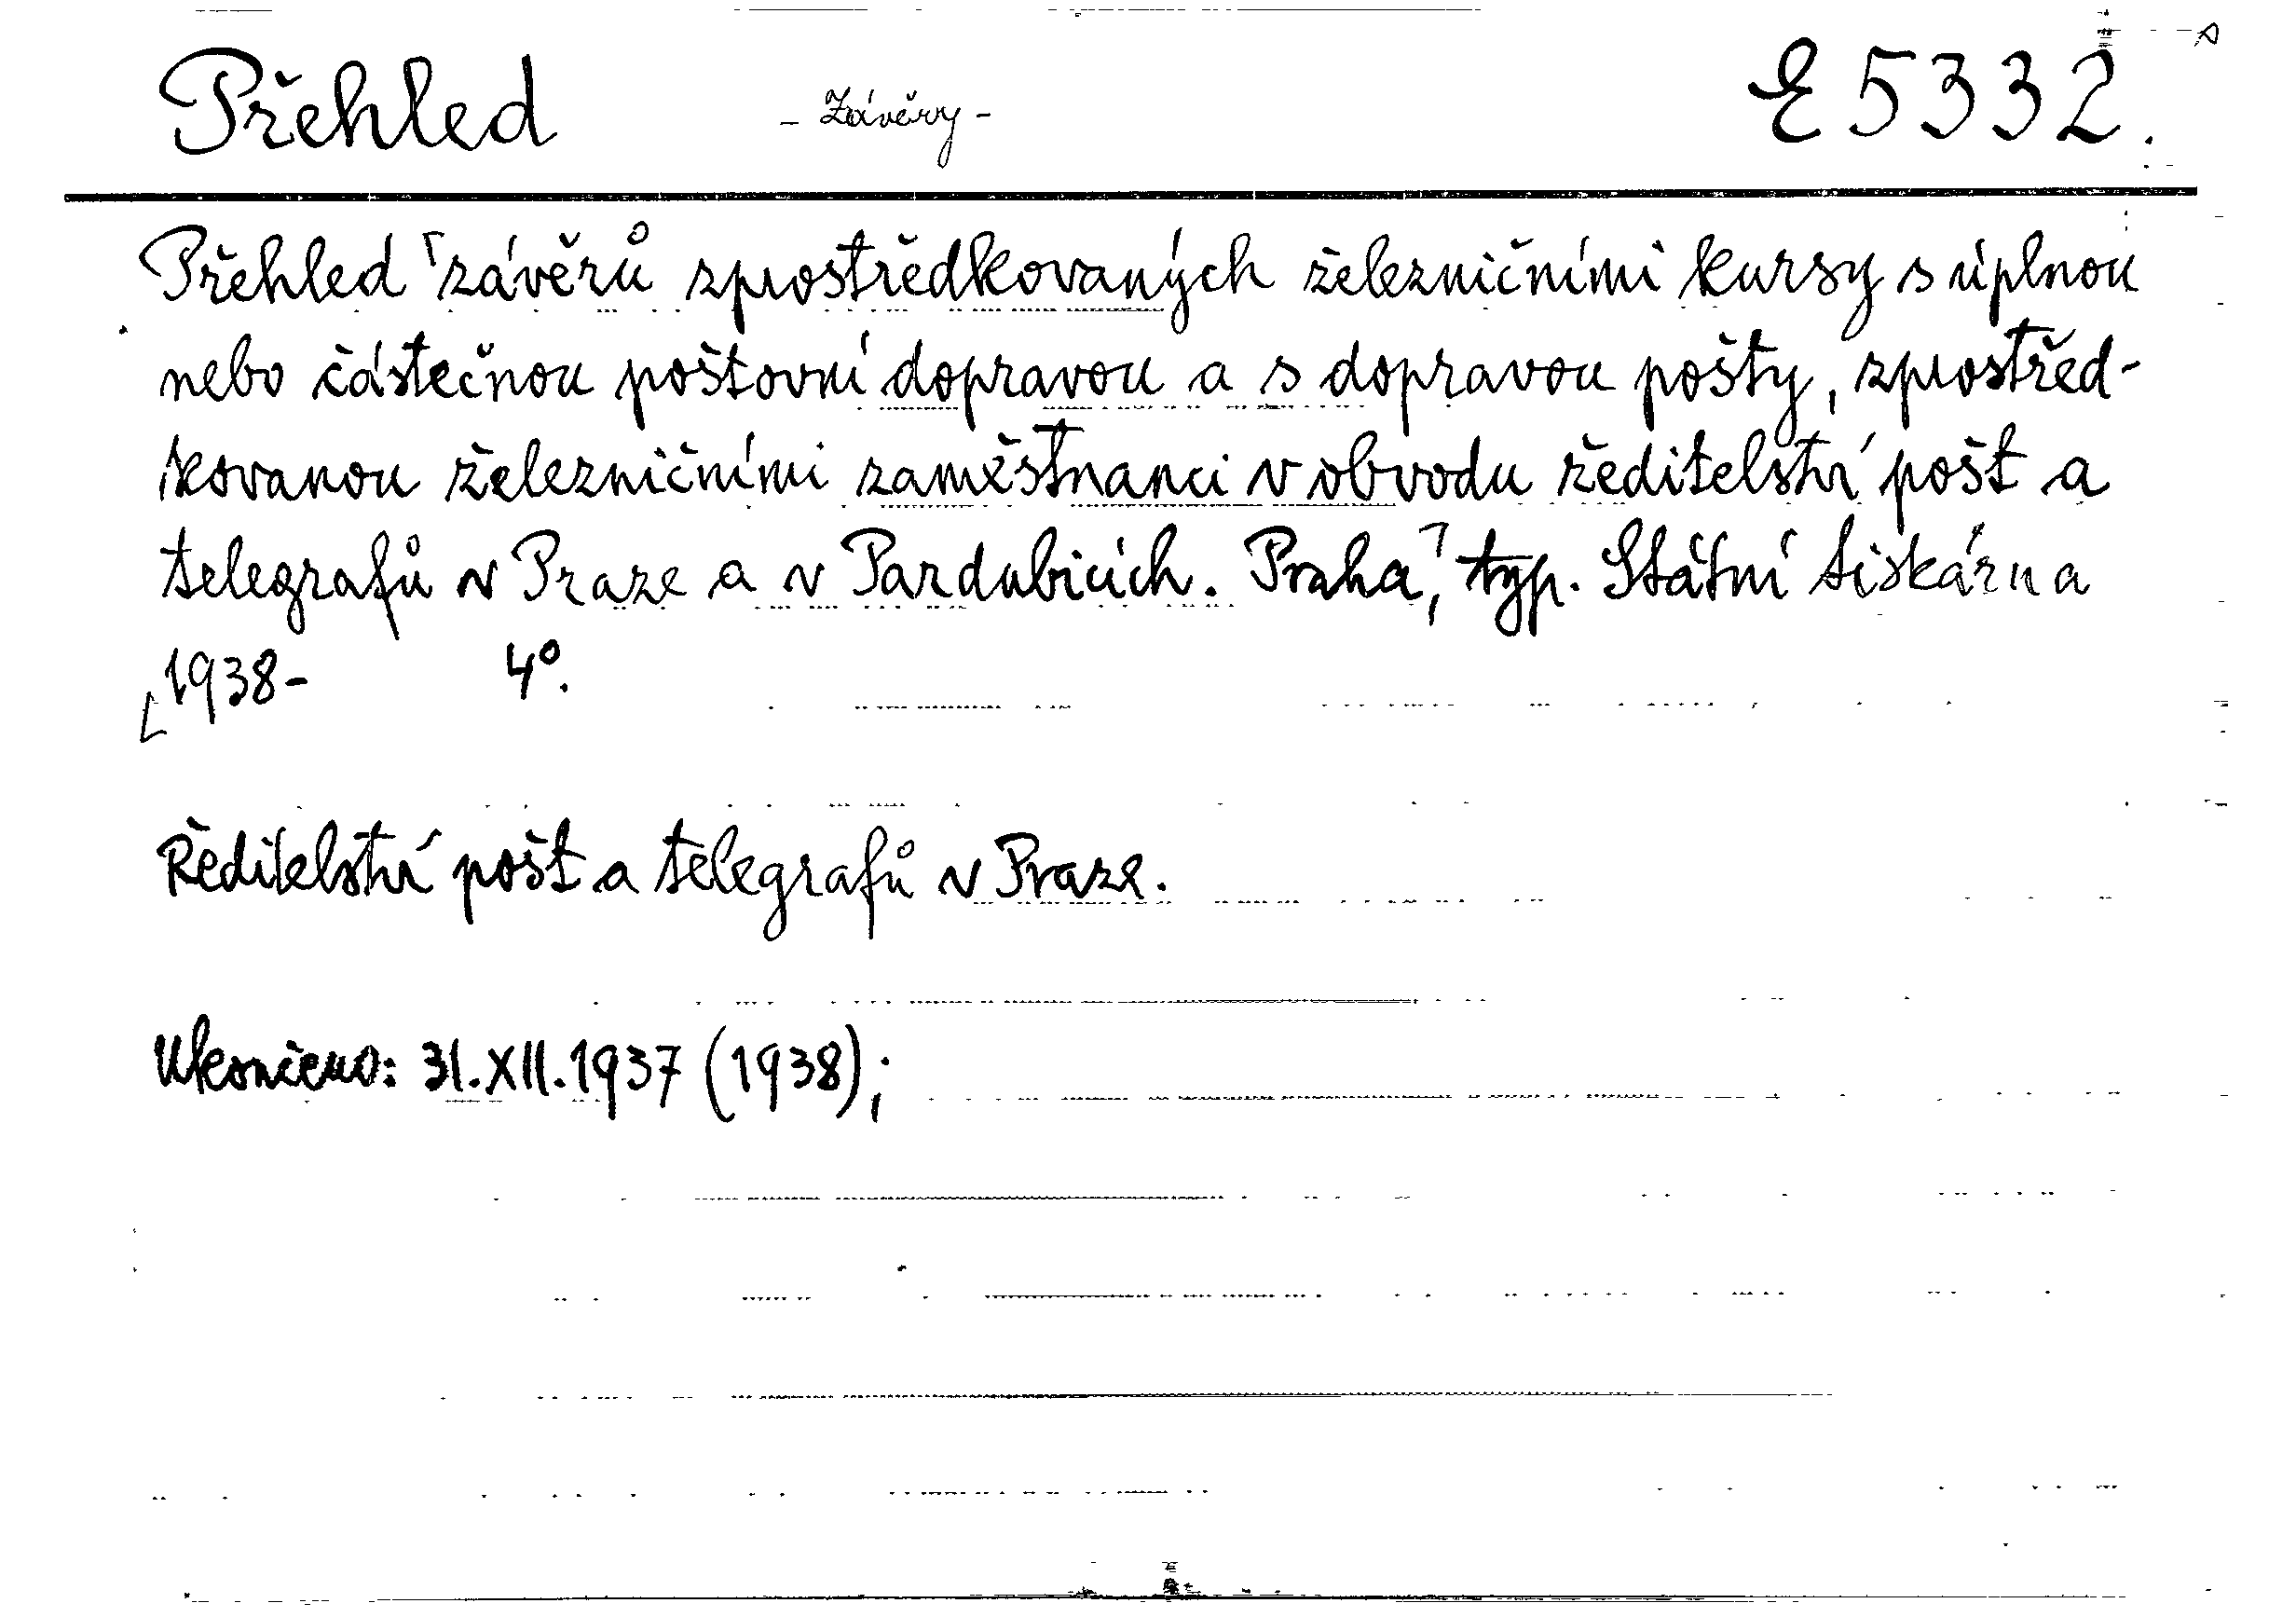 Přehled - Závěry - E 5332.
Přehled závěrů zprostředkovaných železničními kursy s úplnou
nebo částečnou poštovní dopravou a s dopravou pošty, zprostřed-
kovanou železničními zaměstnanci v obvodu ředitelství pošt a
telegrafů v Praze a v Pardubicích. Praha, typ. Státní tiskárna
1938- 4°.
Ředitelství pošt a telegrafů v Praze.
Ukončeno: 31.XII.1937 (1938);